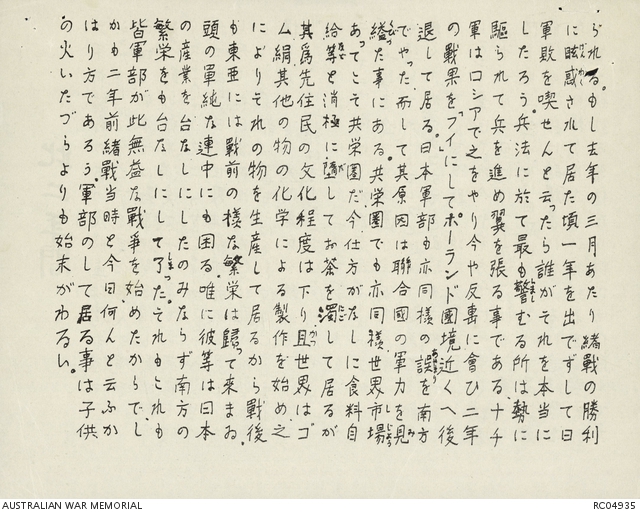 られる。もし去年の三月あたり緒戦の勝利
に眩惑されて居た頃一年を出でずして日
軍敗を喫せんと云ったら誰がそれを本当に
したろう。兵法に於て最も警むる所は勢に
駆られて兵を進め翼を張る事である。ナチ
軍はロシアで之をやり今や反専に會ひ二年
の戦果を「フイ」にしてポーランド國境近くへ後
退して居る。日本軍部も亦同様の誤を南方
でやった。而して其原因は聯合國の軍力を見
縊った事にある。共栄圏でも亦同様、世界市場
あってこそ共栄圏だ。今仕方がなしに食料自
給等と消極に彌してお茶を濁して居るが
其為先住民の文化程度は下り且世界はゴ
ム絹其他の物の化学による製作を始め之
によりそれの物を生産して居るから戦後
も東亜には戦前の様な繁栄は帰って来まゐ。
頭の単純な連中にも困る。唯に彼等は日本
の産業を台なしにしたのみならず南方の
繁栄をも台なしにして了った。それもこれも
皆軍部が此無益な戦争を始めたからでし
かも二年前緒戦当時と今日、何んと云ふか
はり方であろう。軍部のして居る事は子供
の火いたづらよりも始末がわるい。
AUSTRALIAN WAR MEMORIAL
RC04935